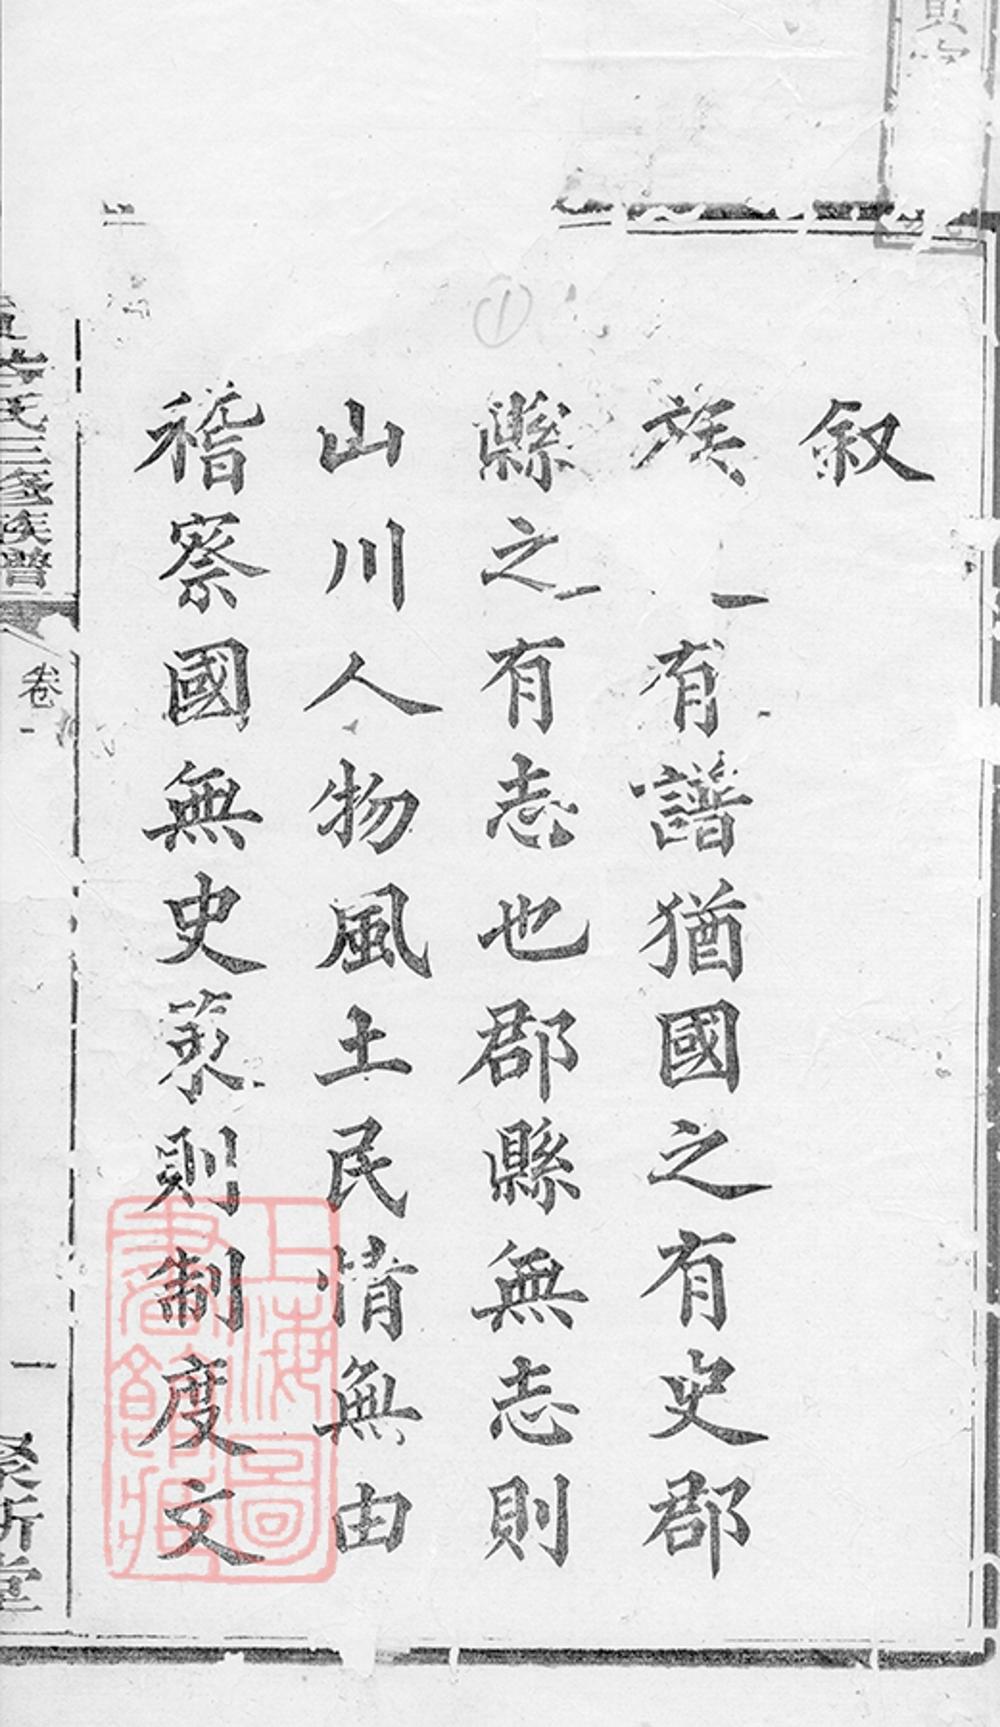 叙
族之有譜猶國之有史郡
縣之有志也郡縣無志則
山川人物風土民情無由
稽察國無史策則制度文
氏三修族譜
卷一
一
聚斯堂
上海圖書館藏